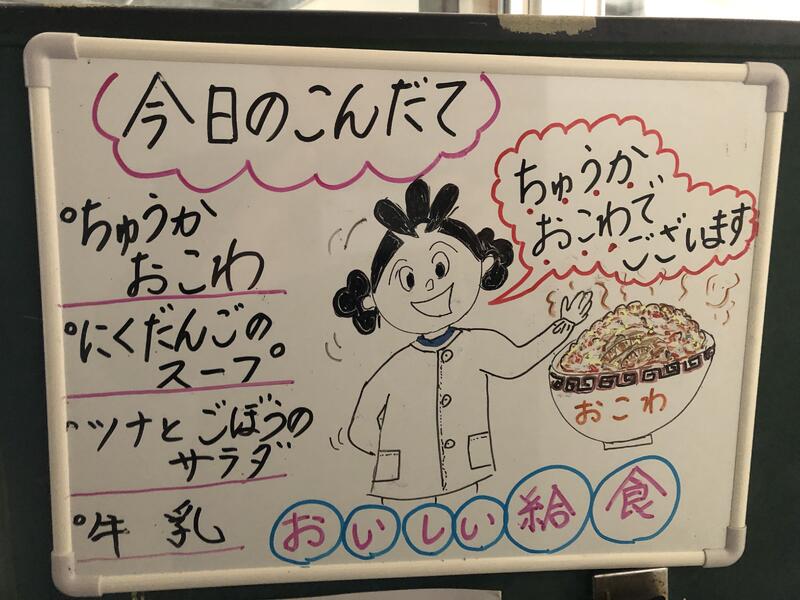 今日のこんだて
ちゅうか
おこわ
にくだんごの
スープ
ツナとごぼうの
サラダ
牛乳
ちゅうか
おこわで
ございます
おこわ
おいしい給食